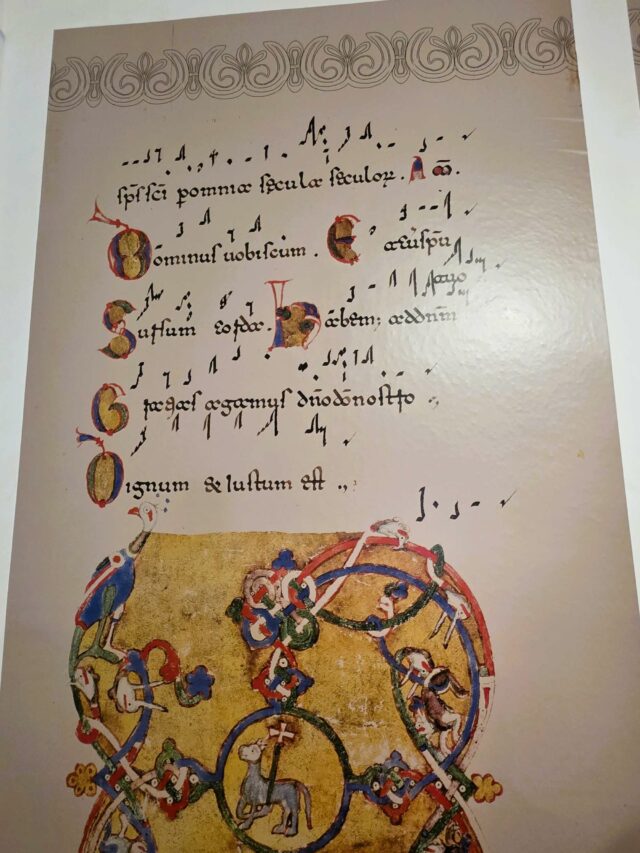 sp̄s sc̄i p omnia secula seculoꝝ. A m̄.
Dominus uobiscum. E
tuo
Sursum corda. Habem; ad dnm̄
Gratias agamus dn̄o dō nostro .,
Dignum & iustum est .,